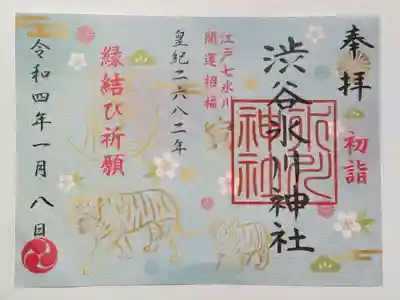 奉拝
初詣
渋谷氷川神社
氷川
神社
江戸七氷川
開運招福
皇紀二六八二年
縁結び祈願
令和四年一月八日